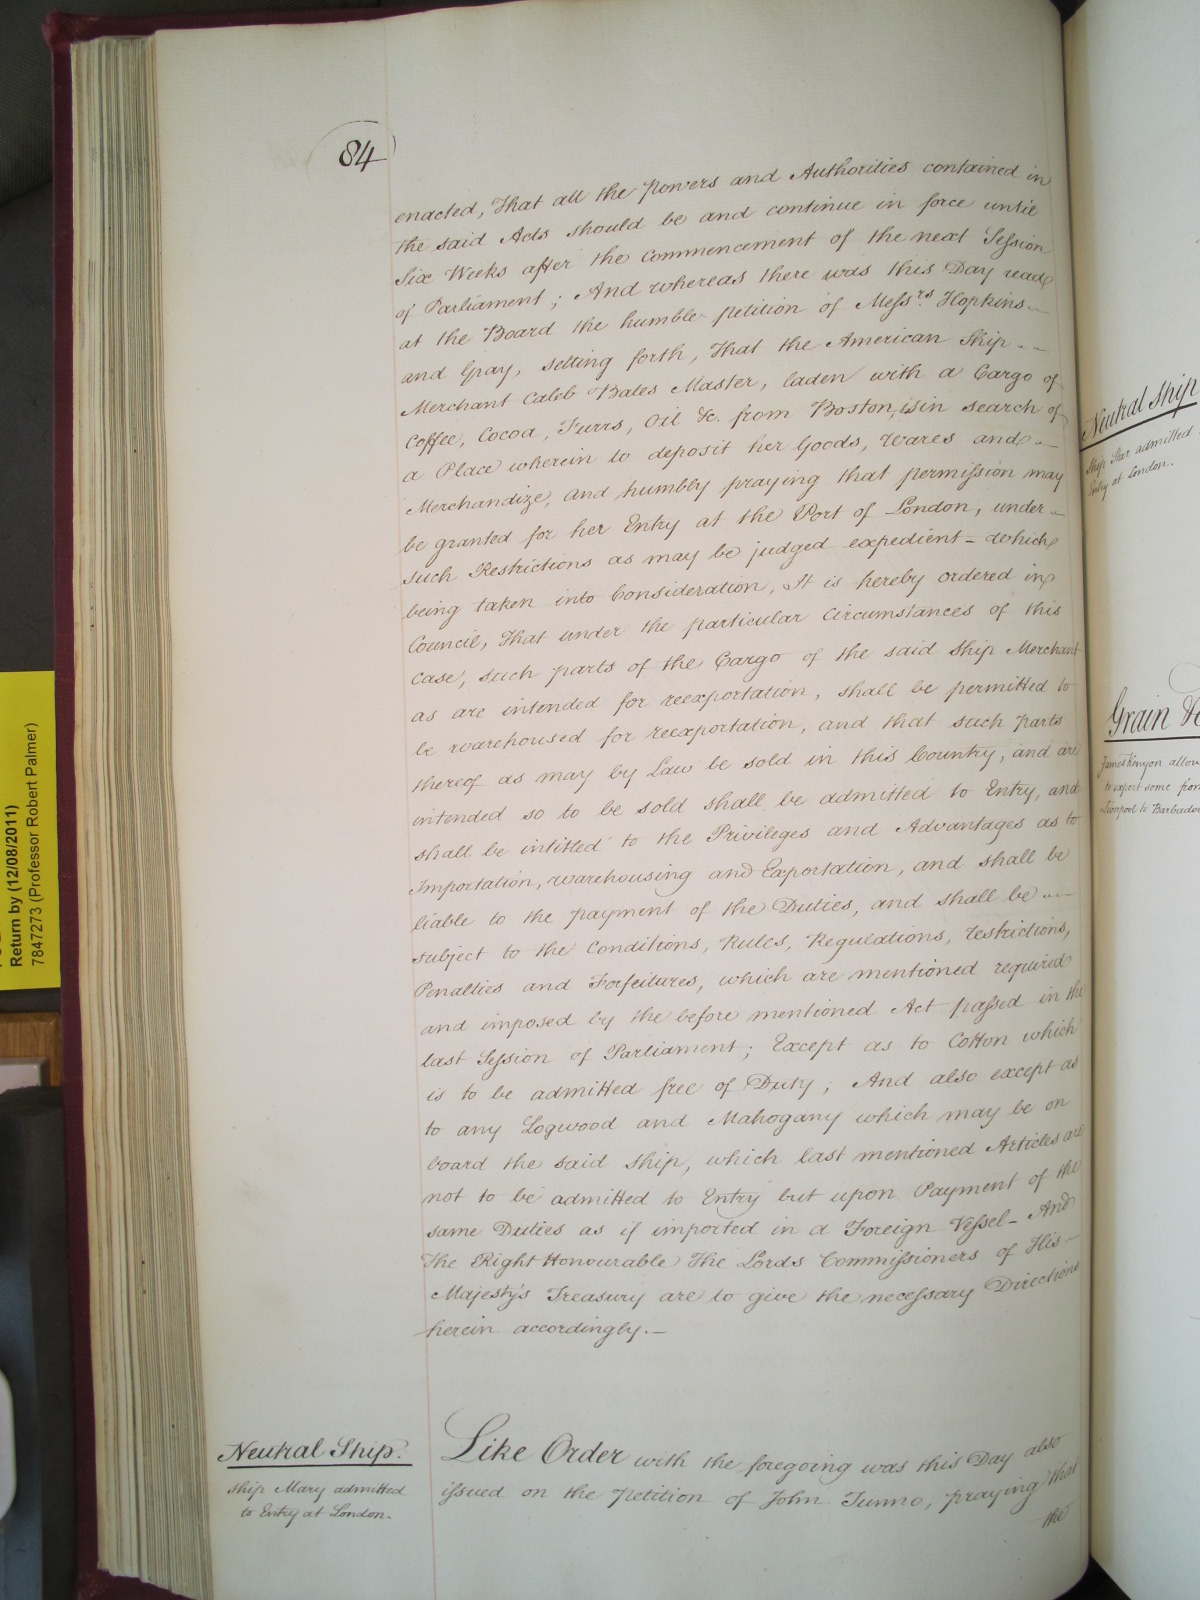 84
enacted, That all the Powers and Authorities contained in
the said Acts should be and continue in force until
Six Weeks after the Commencement of the next Session
of Parliament; And whereas there was this Day read
at the Board the humble petition of Mess.rs Hopkins
and Gray, setting forth, That the American Ship
Merchant Caleb Bates Master, laden with a Cargo of
Coffee, Cocoa, Furrs, Oil &c. from Boston, is in search of
a Place wherein to deposit her Goods, Wares and
Merchandize, and humbly praying that permission may
be granted for her Entry at the Port of London, under
such Restrictions as may be judged expedient - which
being taken into Consideration, It is hereby ordered in
Council, That under the particular Circumstances of this
case, such parts of the Cargo of the said Ship Merchant
as are intended for reexportation, shall be permitted to
be warehoused for reexportation, and that such parts
thereof as may by Law be sold in this Country, and are
intended so to be sold shall be admitted to Entry, and
shall be intitled to the Privileges and Advantages as to
Importation, warehousing and Exportation, and shall be
liable to the payment of the Duties, and shall be
subject to the Conditions, Rules, Regulations, restrictions,
Penalties and Forfeitures, which are mentioned required
and imposed by the before mentioned Act passed in the
last Session of Parliament; Except as to Cotton which
is to be admitted free of Duty; And also except as
to any Logwood and Mahogany which may be on
board the said Ship, which last mentioned Articles are
not to be admitted to Entry but upon Payment of the
same Duties as if imported in a Foreign Vessel - And
The Right Honourable The Lords Commissioners of His
Majesty's Treasury are to give the necessary Directions
herein accordingly.—
Neutral Ship.
Ship Mary admitted
to Entry at London.
Like Order with the foregoing was this Day also
issued on the petition of John Tunno, praying that
the
Neutral Ship
Ship Star admitted
Entry at London.
Grain &c
James Kenyon allow
to export some from
Liverpool to Barbadoes
Return by (12/08/2011)
7847273 (Professor Robert Palmer)